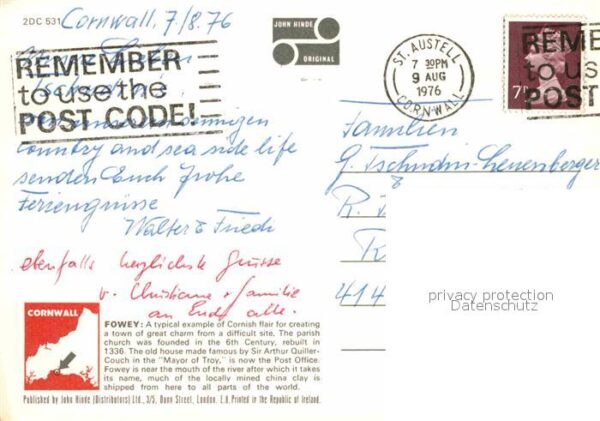 2DC 531
Cornwall, 7/8.76
JOHN HINDE
ORIGINAL
REMEMBER
to use the
POST CODE!
ST. AUSTELL
7 30PM
9 AUG
1976
CORNWALL
REME
to us
POST
7
country and sea side life
senden Euch frohe
Feriengrüsse
Walter & Friedi
ebenfalls herzlichste Grüsse
v. Christiane + Familie
an Euch alle.
Familien
G. Tschudin-Leuenberger
R.
K
414
privacy protection
Datenschutz
CORNWALL
FOWEY: A typical example of Cornish flair for creating
a town of great charm from a difficult site. The parish
church was founded in the 6th Century, rebuilt in
1336. The old house made famous by Sir Arthur Quiller-
Couch in the "Mayor of Troy," is now the Post Office.
Fowey is near the mouth of the river after which it takes
its name, much of the locally mined china clay is
shipped from here to all parts of the world.
Published by John Hinde (Distributors) Ltd., 3/5, Dunn Street, London, E.8. Printed in the Republic of Ireland.